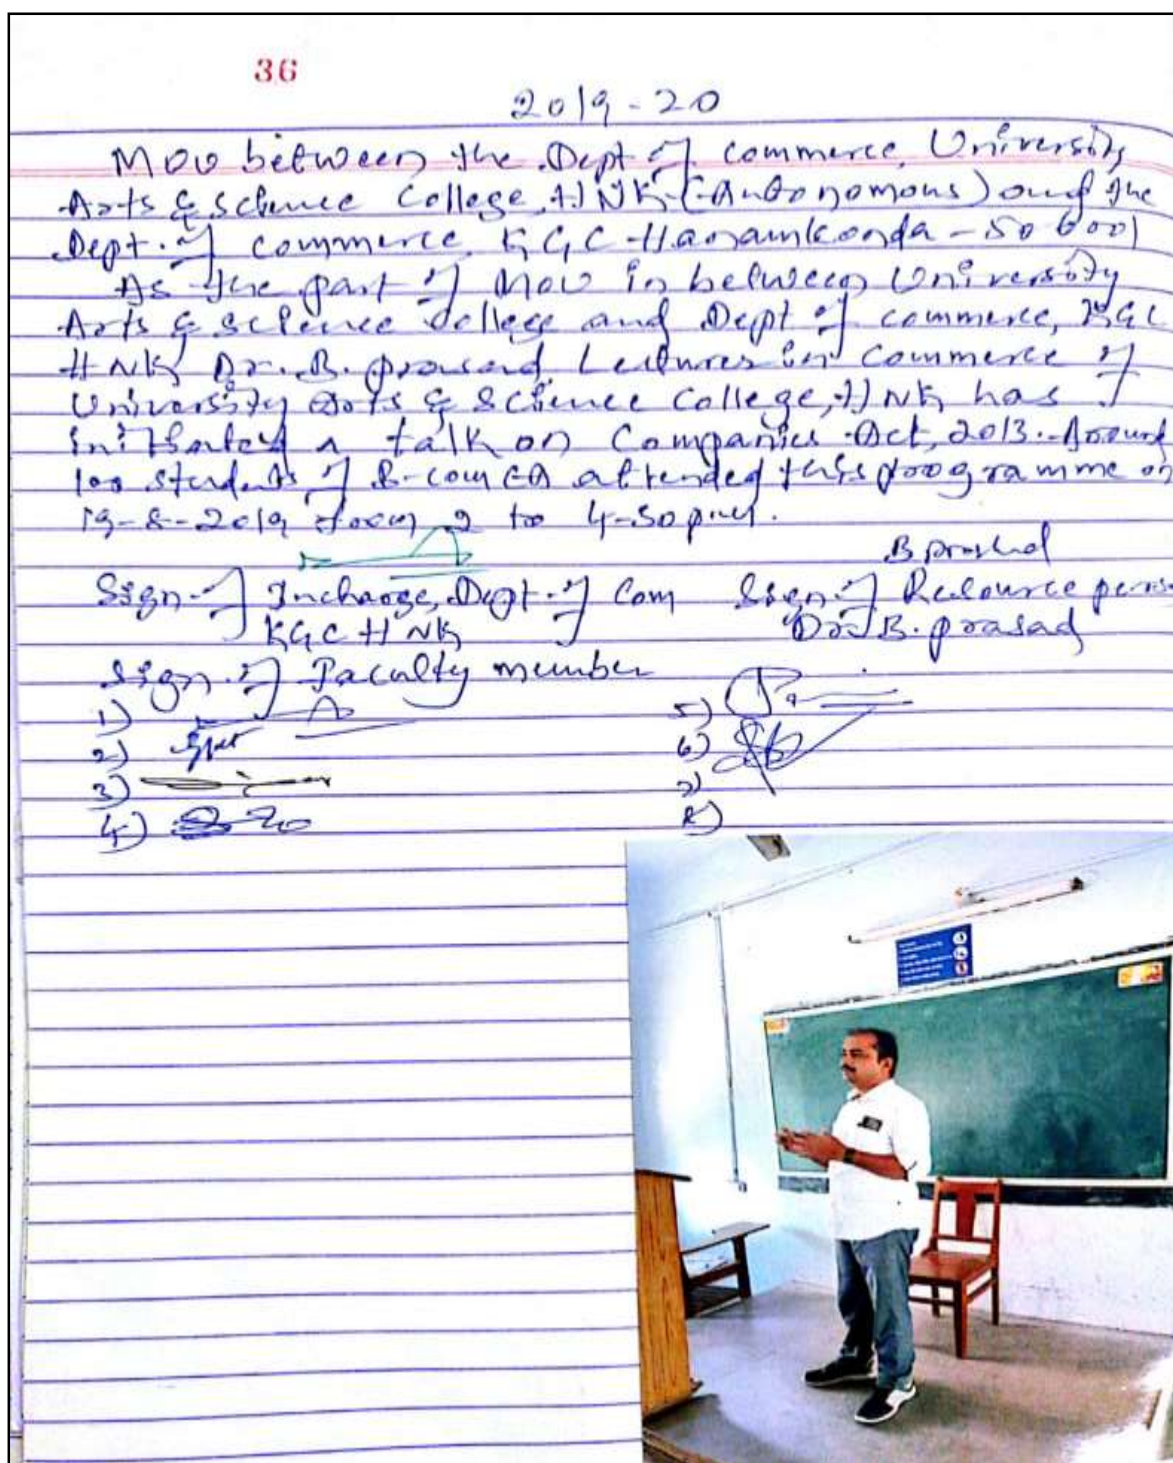 36
2019-20
MOU between the Dept of commerce, University
Arts & Science College, HNK (Autonomous) and the
Dept. of commerce, KGC Hanamkonda - 506001
As the part of MOU in between University
Arts & Science College and Dept of commerce, KGC
HNK, Dr. B. prasad, Lectures in Commerce of
University Arts & Science College, HNK has
initiated a talk on Companies Act, 2013. Around
100 students of B.com CA attended this programme on
19-8-2019 from 2 to 4-30 pm.
B prashad
Sign. of Incharge, Dept. of Com Sign. of Resource perso
KGC HNK Dr. B. prasad
Sign. of Faculty member
1) 5)
2) 6)
3) 7)
4) 8)